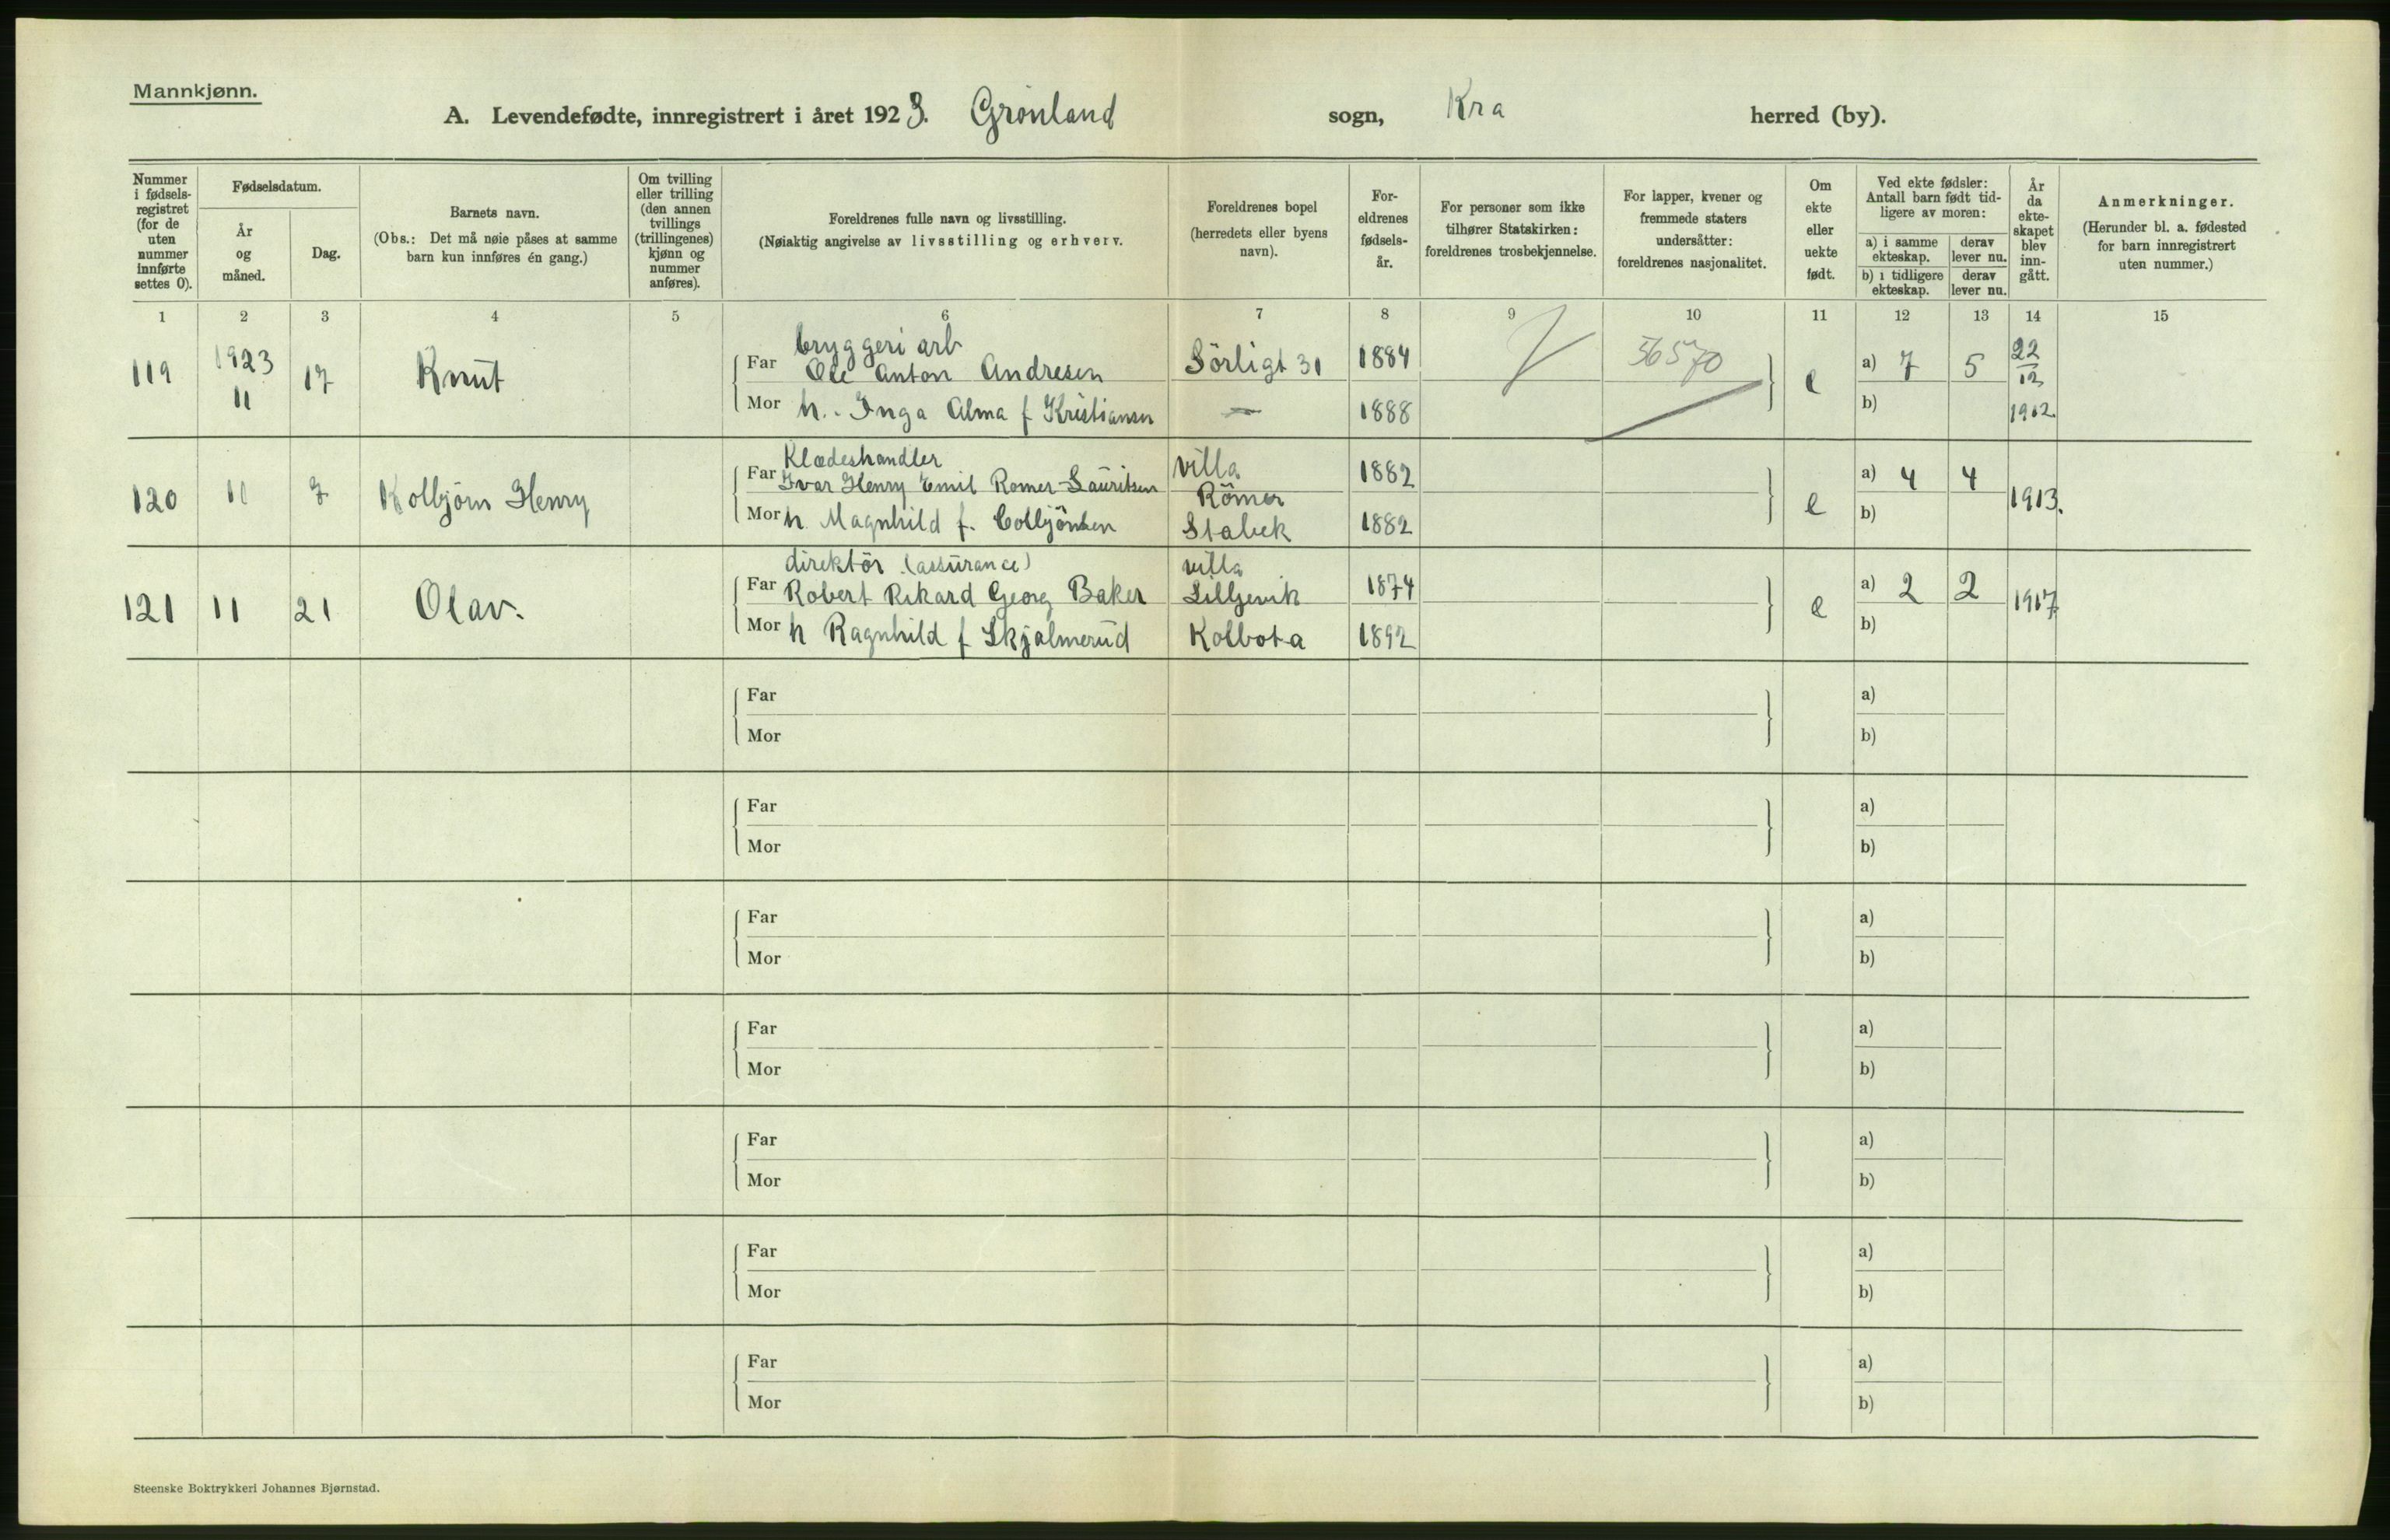 Mannkjønn.
A. Levendefødte, innregistrert i året 1923. Grönland sogn, Kra herred (by).
Nummer i fødsels-registret (for de uten nummer innførte settes 0).
Fødselsdatum.
År og måned.
Dag.
Barnets navn.
(Obs.: Det må nøie påses at samme barn kun innføres én gang.)
Om tvilling eller trilling (den annen tvillings (trillingenes) kjønn og nummer anføres).
Foreldrenes fulle navn og livsstilling.
(Nøiaktig angivelse av livsstilling og erhverv.
Foreldrenes bopel (herredets eller byens navn).
For-eldrenes fødsels-år.
For personer som ikke tilhører Statskirken: foreldrenes trosbekjennelse.
For lapper, kvener og fremmede staters undersåtter: foreldrenes nasjonalitet.
Om ekte eller uekte født.
Ved ekte fødsler: Antall barn født tid-ligere av moren:
a) i samme ekteskap.
derav lever nu.
b) i tidligere ekteskap.
derav lever nu.
År da ekte-skapet blev inn-gått.
Anmerkninger.
(Herunder bl. a. fødested for barn innregistrert uten nummer.)
1 2 3 4 5 6 7 8 9 10 11 12 13 14 15
bryggeri arb
119 1923 11 17 Knut Far Ole Anton Andresen Sörligt 31 1884 56570 e a) 7 5 22/12 1912.
Mor h. - Inga Alma f Kristiansen — 1888 b)
Klædeshandler villa
120 11 7 Kolbjörn Henry Far Ivar Henry Emil Romer-Lauritsen Römer 1882 e a) 4 4 1913.
Mor h. Magnhild f. Colbjönsen Stabek 1882 b)
direktör (assurance) villa
121 11 21 Olav. Far Robert Rikard Georg Baker Lilljevik 1874 e a) 2 2 1917
Mor h Ragnhild f Skjølmerud Kolbota 1892 b)
Far a)
Mor b)
Far a)
Mor b)
Far a)
Mor b)
Far a)
Mor b)
Far a)
Mor b)
Far a)
Mor b)
Far a)
Mor b)
Steenske Boktrykkeri Johannes Bjørnstad.